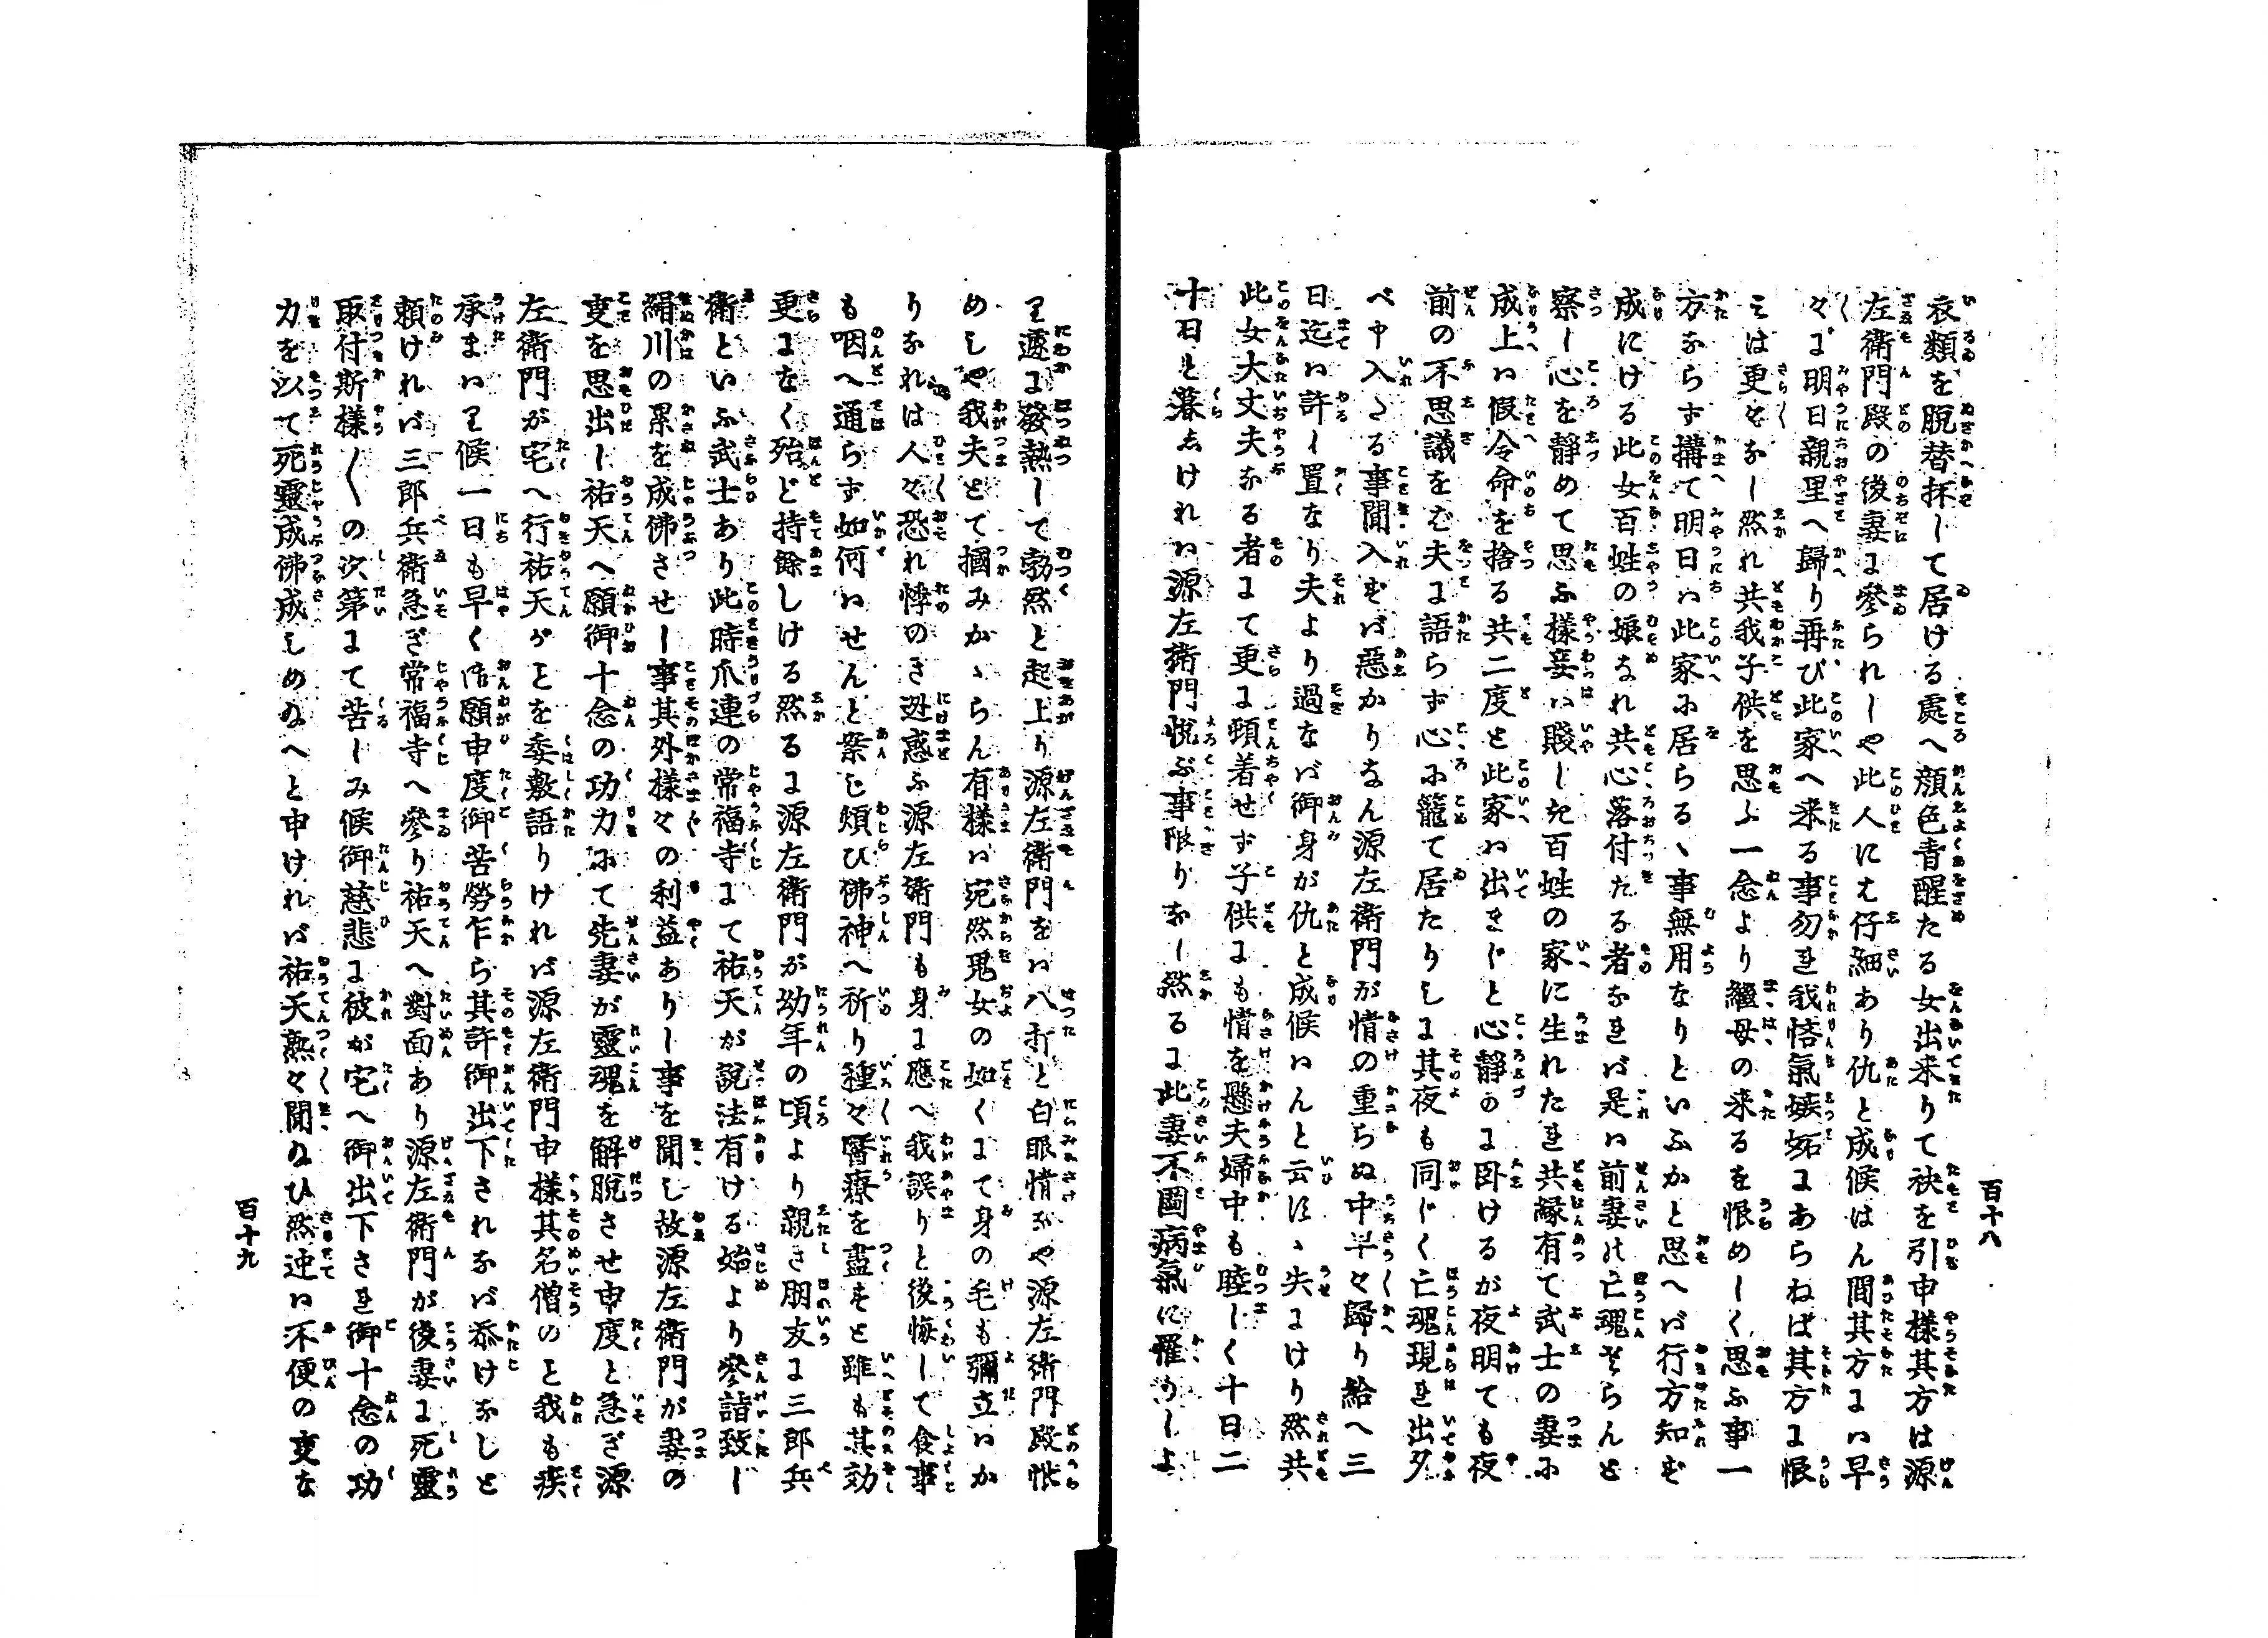 百十八
衣類を脱替抔して居ける處へ顔色青醒たる女出来りて袂を引申様其方は源
左衛門殿の後妻に參られしや此人にえ仔細あり仇と成候はん間其方にハ早
々に明日親里へ歸り再び此家へ来る事勿れ我悋氣嫉妬にあらねば其方に恨
みは更々なし然れ共我子供を思ふ一念より繼母の来るを恨めしく思ふ事一
方ならず搆て明日ハ此家に居らるゝ事無用なりといふかと思へバ行方知ず
成にける此女百姓の娘なれ共心落付たる者なれバ是ハ前妻の亡魂ならんと
察し心を靜めて思ふ樣妾ハ賤しき百姓の家に生れたれ共縁有て武士の妻に
成上ハ假令命を捨る共二度と此家ハ出まじと心靜かに臥けるが夜明ても夜
前の不思議をむ夫に語らず心に籠て居たりしに其夜も同じく亡魂現れ出夕
べ申入たる事聞入ずバ惡かりなん源左衛門が情の重らぬ中早々歸り給へ三
日迄ハ許し置なり夫より過なバ御身が仇と成候ハんと云ひつゝ失にけり然共
此女大丈夫なる者にて更に頓着せず子供にも情を懸夫婦中も睦しく十日二
十日と暮しけれハ源左衛門悦ぶ事限りなし然るに此妻不圖病氣に罹りしよ
り遽に發熱して勃然と起上り源左衛門をハ八打と白眼情なや源左衛門殿恨
めしや我夫とて摑みかゝらん有樣ハ宛然鬼女の如くにて身の毛も彌立ハか
りなれは人々恐れ慄のき迯惑ふ源左衛門も身に應へ我誤りと後悔して食事
も咽へ通らず如何ハせんと案じ煩ひ佛神へ祈り種々醫療を盡すと雖も其効
更になく殆ど持餘しける然るに源左衛門が幼年の頃より親き朋友に三郎兵
衛といふ武士あり此時爪連の常福寺にて祐天が説法有ける始より參詣致し
絹川の累を成佛させし事其外樣々の利益ありし事を聞し故源左衛門が妻の
変を思出し祐天へ願御十念の功力にて先妻が靈魂を解脱させ申度と急ぎ源
左衛門が宅へ行祐天がことを委敷語りけれバ源左衛門申樣其名僧のと我も疾
承まハり候一日も早く御願申度御苦勞乍ら其許御出下されなバ忝けなしと
頼けれバ三郎兵衛急ぎ常福寺へ參り祐天へ對面あり源左衛門が後妻に死靈
取付斯樣〳〵の次第にて苦しみ候御慈悲に彼が宅へ御出下され御十念の功
力を以て死靈成佛成しめ給へと申けれバ祐天熟々聞給ひ然迚ハ不便の変な
百十九